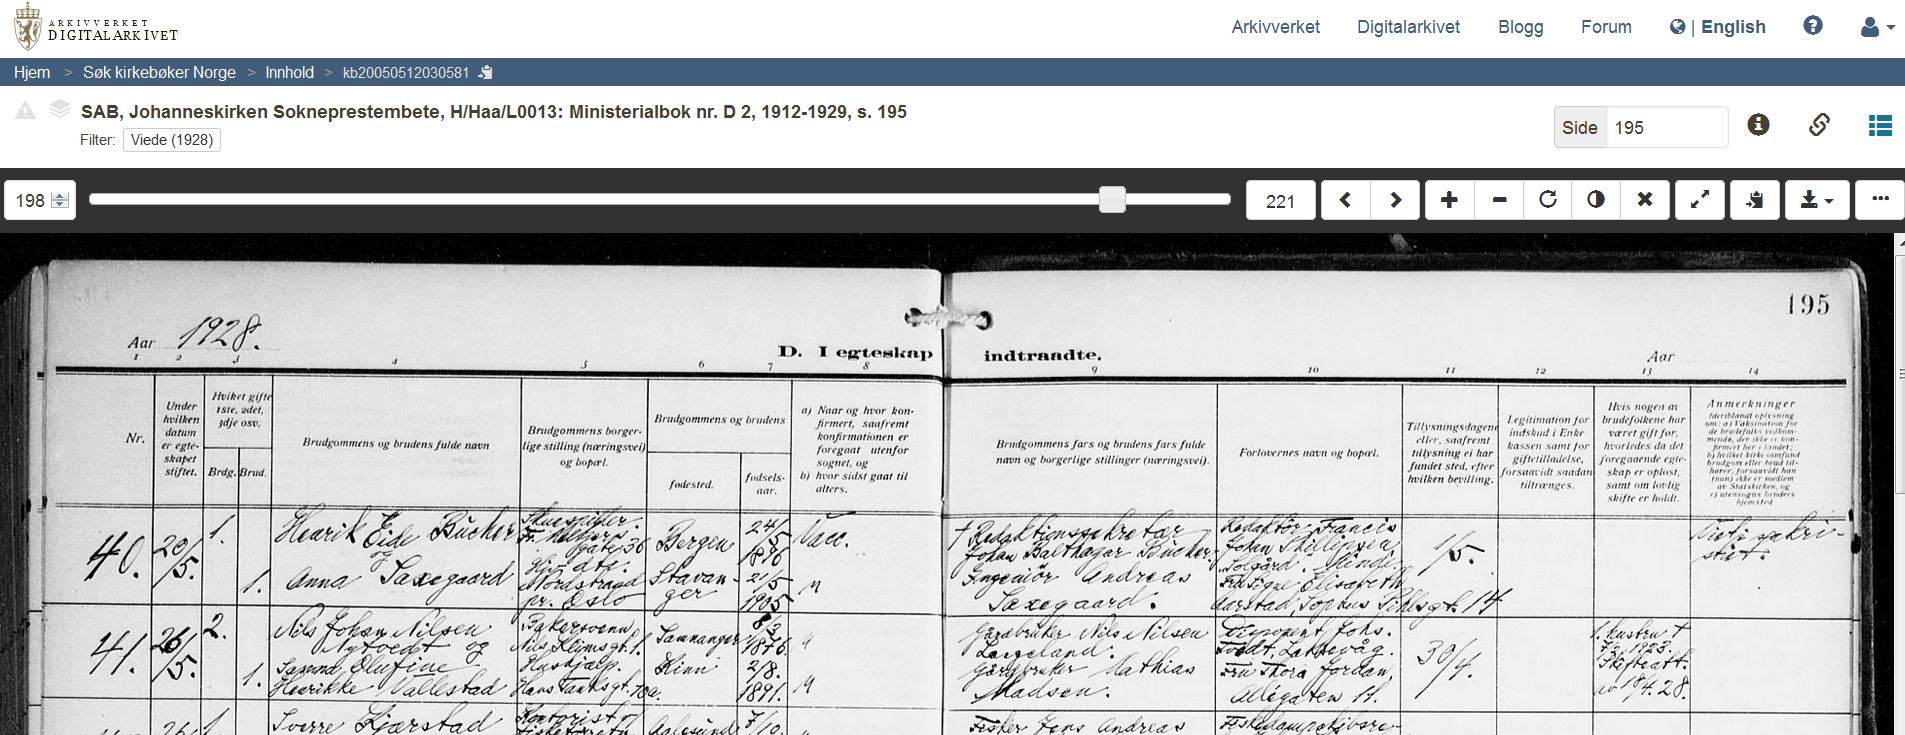 ARKIVVERKET
DIGITALARKIVET
Arkivverket Digitalarkivet Blogg Forum | English
Hjem > Søk kirkebøker Norge > Innhold > kb20050512030581
SAB, Johanneskirken Sokneprestembete, H/Haa/L0013: Ministerialbok nr. D 2, 1912-1929, s. 195
Filter: Viede (1928)
Side 195
198
221
195
Aar 1928.
D. I egteskap indtraadte.
Aar
1 2 3 4 5 6 7 8 9 10 11 12 13 14
Nr.
Under
hvilken
datum
er egte-
skapet
stiftet.
Hviket gifte
1ste, 2det,
3dje osv.
Brdg. Brud.
Brudgommens og brudens fulde navn
Brudgommens borger-
lige stilling (næringsvei)
og bopæl.
Brudgommens og brudens
fødested.
fødsels-
aar.
a) Naar og hvor kon-
firmert, saafremt
konfirmationen er
foregaat utenfor
sognet, og
b) hvor sidst gaat til
alters.
Brudgommens fars og brudens fars fulde
navn og borgerlige stillinger (næringsvei).
Forlovernes navn og bopæl.
Tillysningsdagene
eller, saafremt
tillysning ei har
fundet sted, efter
hvilken bevilling.
Legitimation for
indskud i Enke
kassen samt for
giftetilladelse,
forsaavidt saadan
tiltrænges.
Hvis nogen av
brudefolkene har
været gift før,
hvorledes da det
foregaaende egte-
skap er opløst,
samt om lovlig
skifte er holdt.
Anmerkninger
(deriblandt oplysning
om: a) Vaksination for
de brudefolks vedkom-
mende, der ikke er kon-
firmert her i landet;
b) hvilket kirkesamfund
brudgom eller brud til-
hører, forsaavidt han
(hun) ikke er medlem
av Statskirken, og
c) utensogns bruders
hjemsted
40. 20/5. 1.
Henrik Eide Bücher
og
1. Anna Saxegaard
Skuespiller.
gate 36
Nordstrand
pr. Oslo
Bergen
24/5
1896
Vacc.
Stavan-
ger
21/5
1905
"
† Redaktionssekretær
Johan Balthazar Bücher.
Ingeniør Andreas
Saxegaard.
Redaktør Francis
Johan Phillipsen,
Solgård. Minde.
Fru Signe Elisabeth
Aarstad, Sophus Pihlsgt. 14
1/5.
Viet i sakri-
stiet.
41. 26/5. 2.
Nils Johan Nilsen
Nytvedt og
1. Samma Olufine
Henrikke Vallestad
Bakersvenn
Nils Klimsgt. 1.
Hushjelp.
Hans Tanksgt. 10a.
Samnanger
8/3
1876.
"
Kinn
2/8.
1891.
"
Gårdbruker Nils Nilsen
Langeland.
Gårdbruker Mathias
Madsen.
Disponent Johs.
Tvedt, Laksevåg.
Fru Thora Jordan,
Allégaten 11.
30/4.
1. hustru †
1923.
Skifteatt.
av 18/4. 28.
26 1.
Sverre Kjærstad
Kontorist
Aalesund
7/10.
"
Fisker Jens Andreas